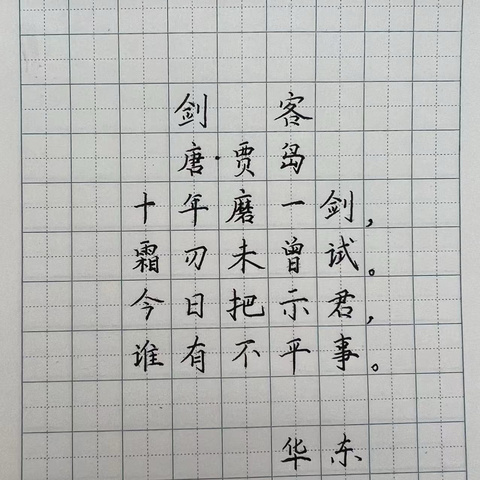 剑客
唐·贾岛
十年磨一剑，
霜刃未曾试。
今日把示君，
谁有不平事。
华东